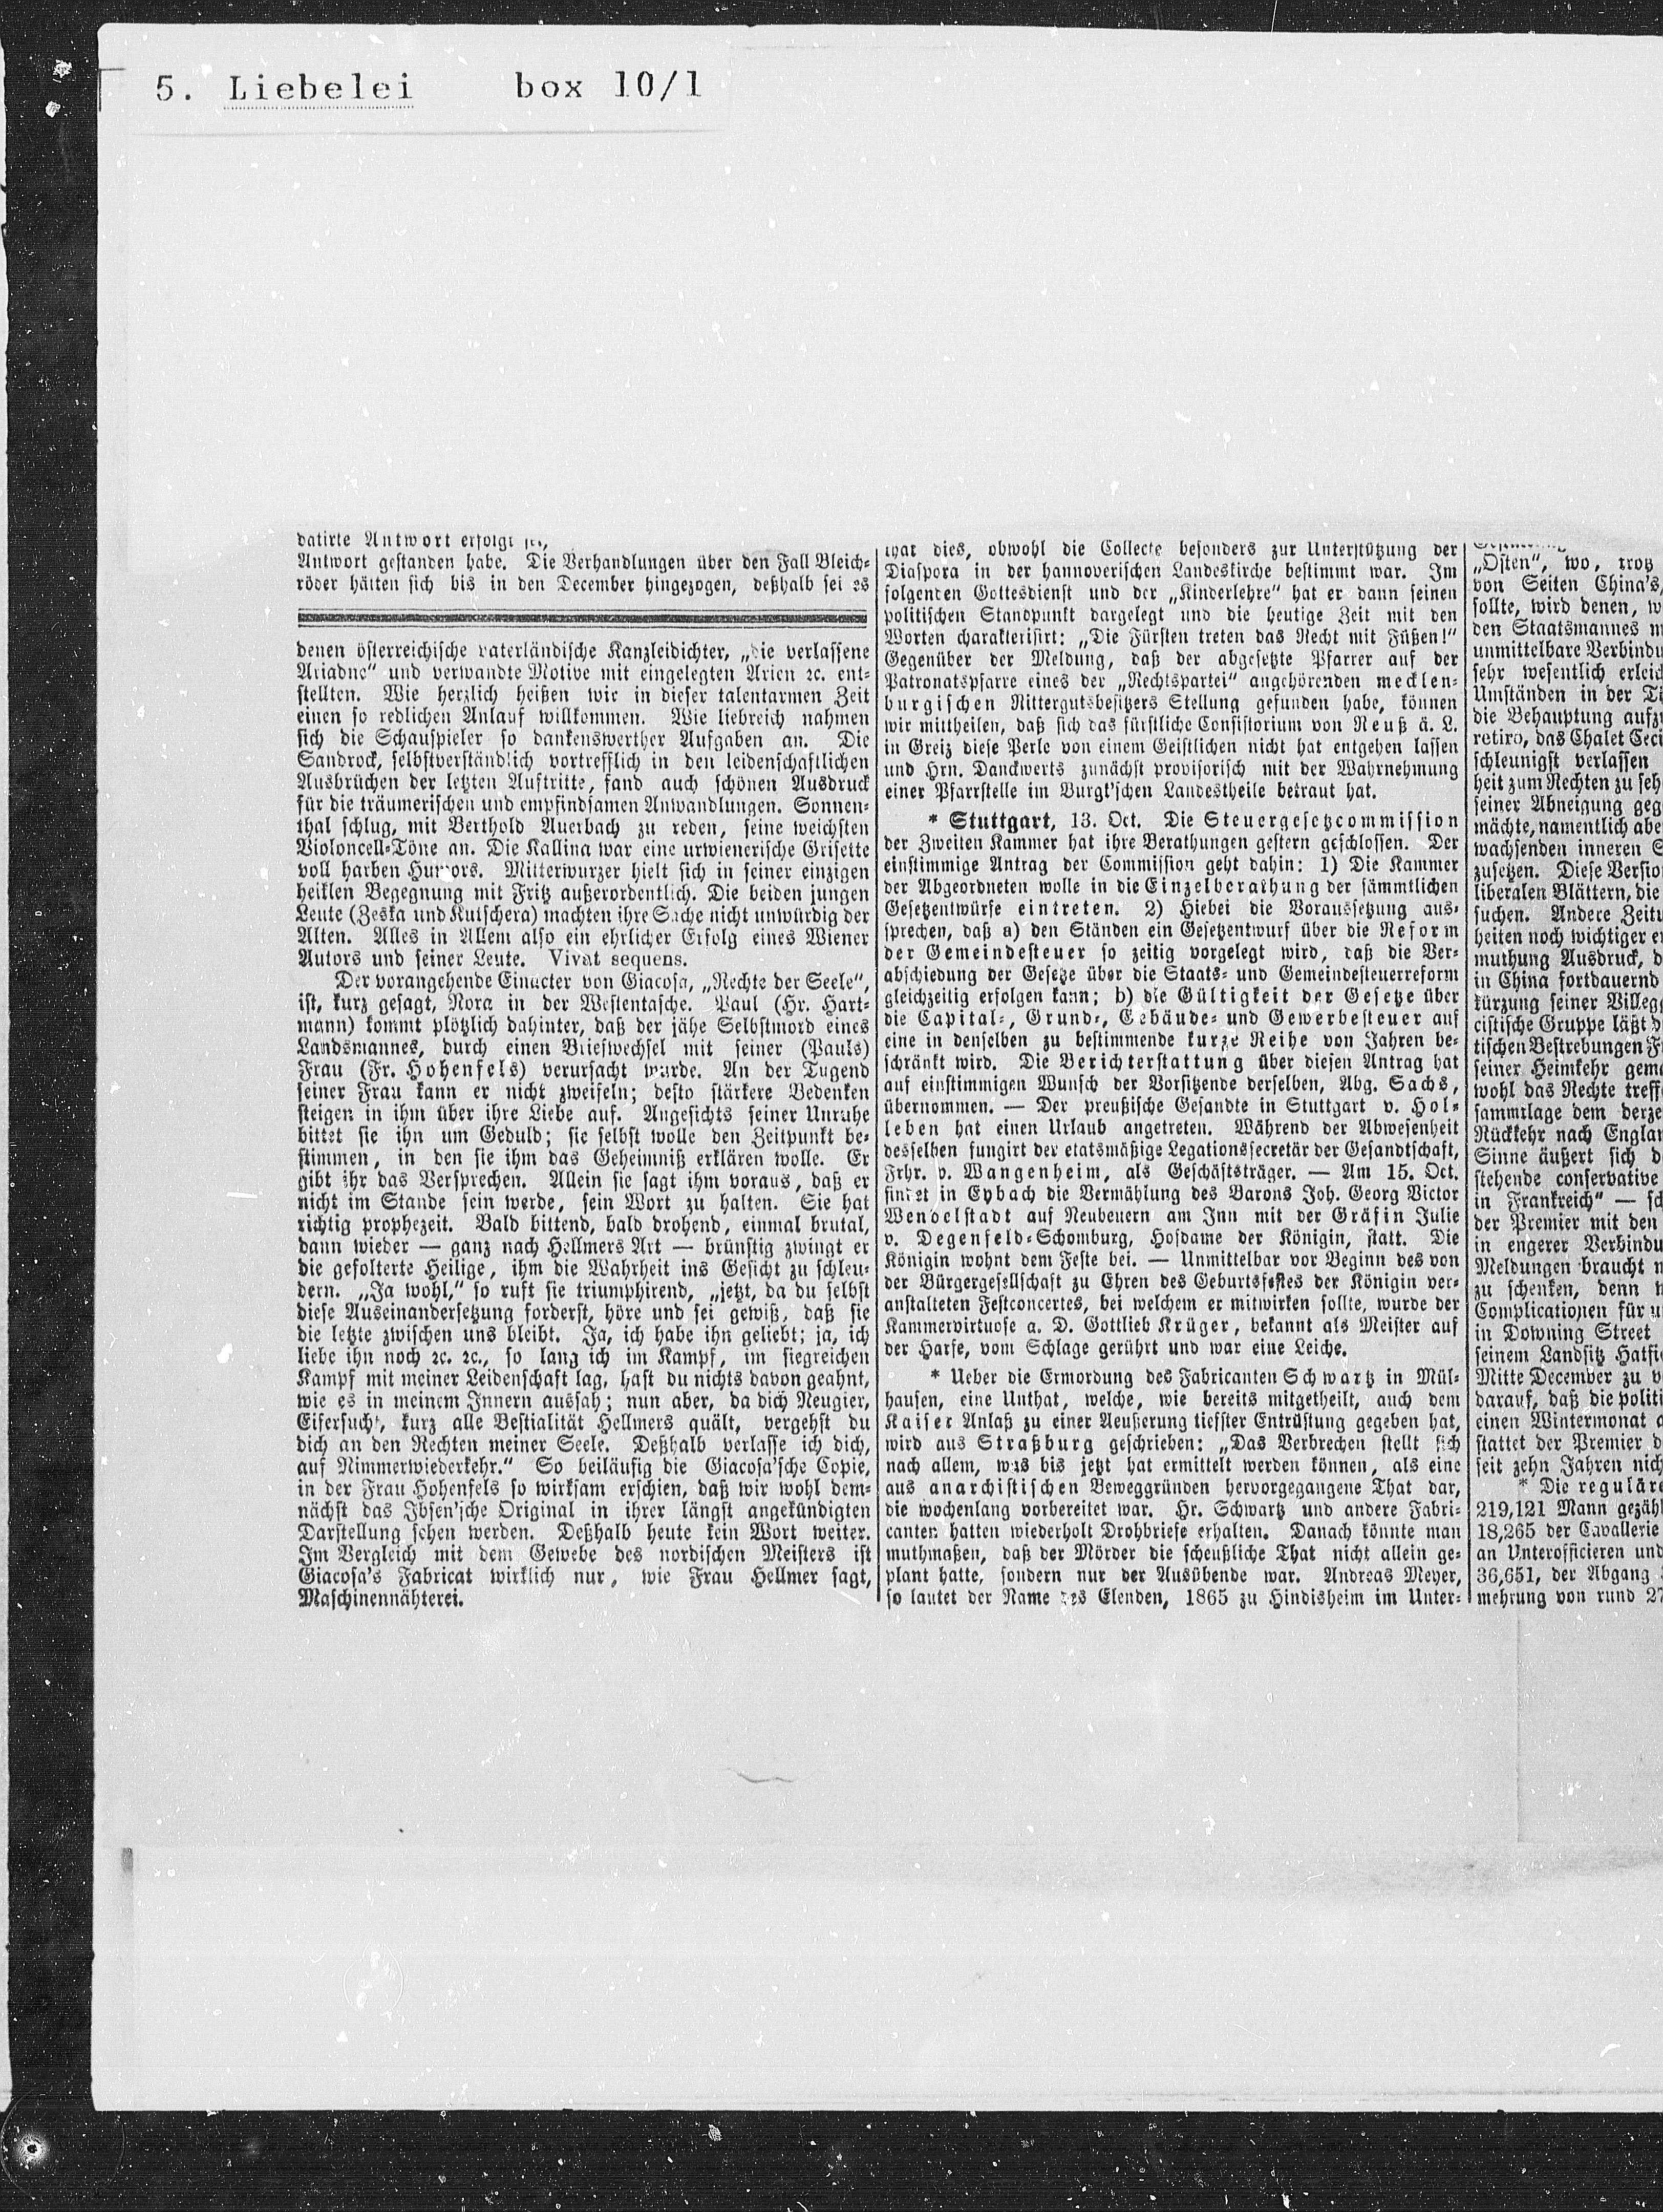 5. Liebelei box 10/1
datirte Antwort erfolgt
Antwort gestanden habe. Die Verhandlungen über den Fall Bleich-
röder hätten sich bis in den December hingezogen, deßhalb sei es
denen österreichische vaterländische Kanzleidichter, „die verlassene
Ariadne“ und verwandte Motive mit eingelegten Arien ꝛc. ent-
stellten. Wie herzlich heißen wir in dieser talentarmen Zeit
einen so redlichen Anlauf willkommen. Wie liebreich nahmen
sich die Schauspieler so dankenswerther Aufgaben an. Die
Sandrock, selbstverständlich vortrefflich in den leidenschaftlichen
Ausbrüchen der letzten Auftritte, fand auch schönen Ausdruck
für die träumerischen und empfindsamen Anwandlungen. Sonnen-
thal schlug, mit Berthold Auerbach zu reden, seine weichsten
Violoncell-Töne an. Die Kallina war eine urwienerische Grisette
voll harben Humors. Mitterwurzer hielt sich in seiner einzigen
heiklen Begegnung mit Fritz außerordentlich. Die beiden jungen
Leute (Zeska und Kutschera) machten ihre Sache nicht unwürdig der
Alten. Alles in Allem also ein ehrlicher Erfolg eines Wiener
Autors und seiner Leute. Vivat sequens.
Der vorangehende Einacter von Giacosa, „Rechte der Seele“,
ist, kurz gesagt, Nora in der Westentasche. Paul (Hr. Hart-
mann) kommt plötzlich dahinter, daß der jähe Selbstmord eines
Landsmannes, durch einen Briefwechsel mit seiner (Pauls)
Frau (Fr. Hohenfels) verursacht wurde. An der Tugend
seiner Frau kann er nicht zweifeln; desto stärkere Bedenken
steigen in ihm über ihre Liebe auf. Angesichts seiner Unruhe
bittet sie ihn um Geduld; sie selbst wolle den Zeitpunkt be-
stimmen, in den sie ihm das Geheimniß erklären wolle. Er
gibt ihr das Versprechen. Allein sie sagt ihm voraus, daß er
nicht im Stande sein werde, sein Wort zu halten. Sie hat
richtig prophezeit. Bald bittend, bald drohend, einmal brutal,
dann wieder — ganz nach Hellmers Art — brünstig zwingt er
die gefolterte Heilige, ihm die Wahrheit ins Gesicht zu schleu-
dern. „Ja wohl,“ so ruft sie triumphirend, „jetzt, da du selbst
diese Auseinandersetzung forderst, höre und sei gewiß, daß sie
die letzte zwischen uns bleibt. Ja, ich habe ihn geliebt; ja, ich
liebe ihn noch ꝛc. ꝛc., so lang ich im Kampf, im siegreichen
Kampf mit meiner Leidenschaft lag, hast du nichts davon geahnt,
wie es in meinem Innern aussah; nun aber, da dich Neugier,
Eifersucht, kurz alle Bestialität Hellmers quält, vergehst du
dich an den Rechten meiner Seele. Deßhalb verlasse ich dich,
auf Nimmerwiederkehr.“ So beiläufig die Giacosa'sche Copie,
in der Frau Hohenfels so wirksam erschien, daß wir wohl dem-
nächst das Ibsen'sche Original in ihrer längst angekündigten
Darstellung sehen werden. Deßhalb heute kein Wort weiter.
Im Vergleich mit dem Gewebe des nordischen Meisters ist
Giacosa's Fabricat wirklich nur, wie Frau Hellmer sagt,
Maschinennähterei.
that dies, obwohl die Collecte besonders zur Unterstützung der
Diaspora in der hannoverischen Landeskirche bestimmt war. Im
folgenden Gottesdienst und der „Kinderlehre“ hat er dann seinen
politischen Standpunkt dargelegt und die heutige Zeit mit den
Worten charakterisirt: „Die Fürsten treten das Recht mit Füßen!“
Gegenüber der Meldung, daß der abgesetzte Pfarrer auf der
Patronatspfarre eines der „Rechtspartei“ angehörenden mecklen-
burgischen Rittergutsbesitzers Stellung gefunden habe, können
wir mittheilen, daß sich das fürstliche Consistorium von Reuß ä. L.
in Greiz diese Perle von einem Geistlichen nicht hat entgehen lassen
und Hrn. Danckwerts zunächst provisorisch mit der Wahrnehmung
einer Pfarrstelle im Burgk'schen Landestheile betraut hat.
* Stuttgart, 13. Oct. Die Steuergesetzcommission
der Zweiten Kammer hat ihre Berathungen gestern geschlossen. Der
einstimmige Antrag der Commission geht dahin: 1) Die Kammer
der Abgeordneten wolle in die Einzelberathung der sämmtlichen
Gesetzentwürfe eintreten. 2) Hiebei die Voraussetzung aus-
sprechen, daß a) den Ständen ein Gesetzentwurf über die Reform
der Gemeindesteuer so zeitig vorgelegt wird, daß die Ver-
abschiedung der Gesetze über die Staats- und Gemeindesteuerreform
gleichzeitig erfolgen kann; b) die Gültigkeit der Gesetze über
die Capital-, Grund-, Gebäude- und Gewerbesteuer auf
eine in denselben zu bestimmende kurze Reihe von Jahren be-
schränkt wird. Die Berichterstattung über diesen Antrag hat
auf einstimmigen Wunsch der Vorsitzende derselben, Abg. Sachs,
übernommen. — Der preußische Gesandte in Stuttgart v. Hol-
leben hat einen Urlaub angetreten. Während der Abwesenheit
desselben fungirt der etatsmäßige Legationssecretär der Gesandtschaft,
Frhr. v. Wangenheim, als Geschäftsträger. — Am 15. Oct.
findet in Eybach die Vermählung des Barons Joh. Georg Victor
Wendelstadt auf Neubeuern am Inn mit der Gräfin Julie
v. Degenfeld-Schomburg, Hofdame der Königin, statt. Die
Königin wohnt dem Feste bei. — Unmittelbar vor Beginn des von
der Bürgergesellschaft zu Ehren des Geburtsfestes der Königin ver-
anstalteten Festconcertes, bei welchem er mitwirken sollte, wurde der
Kammervirtuose a. D. Gottlieb Krüger, bekannt als Meister auf
der Harfe, vom Schlage gerührt und war eine Leiche.
* Ueber die Ermordung des Fabricanten Schwartz in Mül-
hausen, eine Unthat, welche, wie bereits mitgetheilt, auch dem
Kaiser Anlaß zu einer Aeußerung tiefster Entrüstung gegeben hat,
wird aus Straßburg geschrieben: „Das Verbrechen stellt sich
nach allem, was bis jetzt hat ermittelt werden können, als eine
aus anarchistischen Beweggründen hervorgegangene That dar,
die wochenlang vorbereitet war. Hr. Schwartz und andere Fabri-
canten hatten wiederholt Drohbriefe erhalten. Danach könnte man
muthmaßen, daß der Mörder die scheußliche That nicht allein ge-
plant hatte, sondern nur der Ausübende war. Andreas Meyer,
so lautet der Name des Elenden, 1865 zu Hindisheim im Unter-
„Osten“, wo, trotz
von Seiten China's,
sollte, wird denen, w
den Staatsmannes m
unmittelbare Verbindu
sehr wesentlich erleic
Umständen in der Tü
die Behauptung aufzu
retiro, das Chalet Ceci
schleunigst verlassen
heit zum Rechten zu seh
seiner Abneigung geg
mächte, namentlich abe
wachsenden inneren S
zusetzen. Diese Versio
liberalen Blättern, die
suchen. Andere Zeitu
heiten noch wichtiger er
muthung Ausdruck, d
in China fortdauernd
kürzung seiner Villeg
cistische Gruppe läßt d
tischen Bestrebungen F
seiner Heimkehr gema
wohl das Rechte treff
sammtlage dem derze
Rückkehr nach Englan
Sinne äußert sich d
stehende conservative
in Frankreich“ — sc
der Premier mit den
in engerer Verbindu
Meldungen braucht n
zu schenken, denn
Complicationen für u
in Downing Street
seinem Landsitz Hatfi
Mitte December zu v
darauf, daß die politi
einen Wintermonat a
stattet der Premier d
seit zehn Jahren nich
* Die reguläre
219,121 Mann gezähl
18,265 der Cavallerie
an Unterofficieren und
36,651, der Abgang
mehrung von rund 27